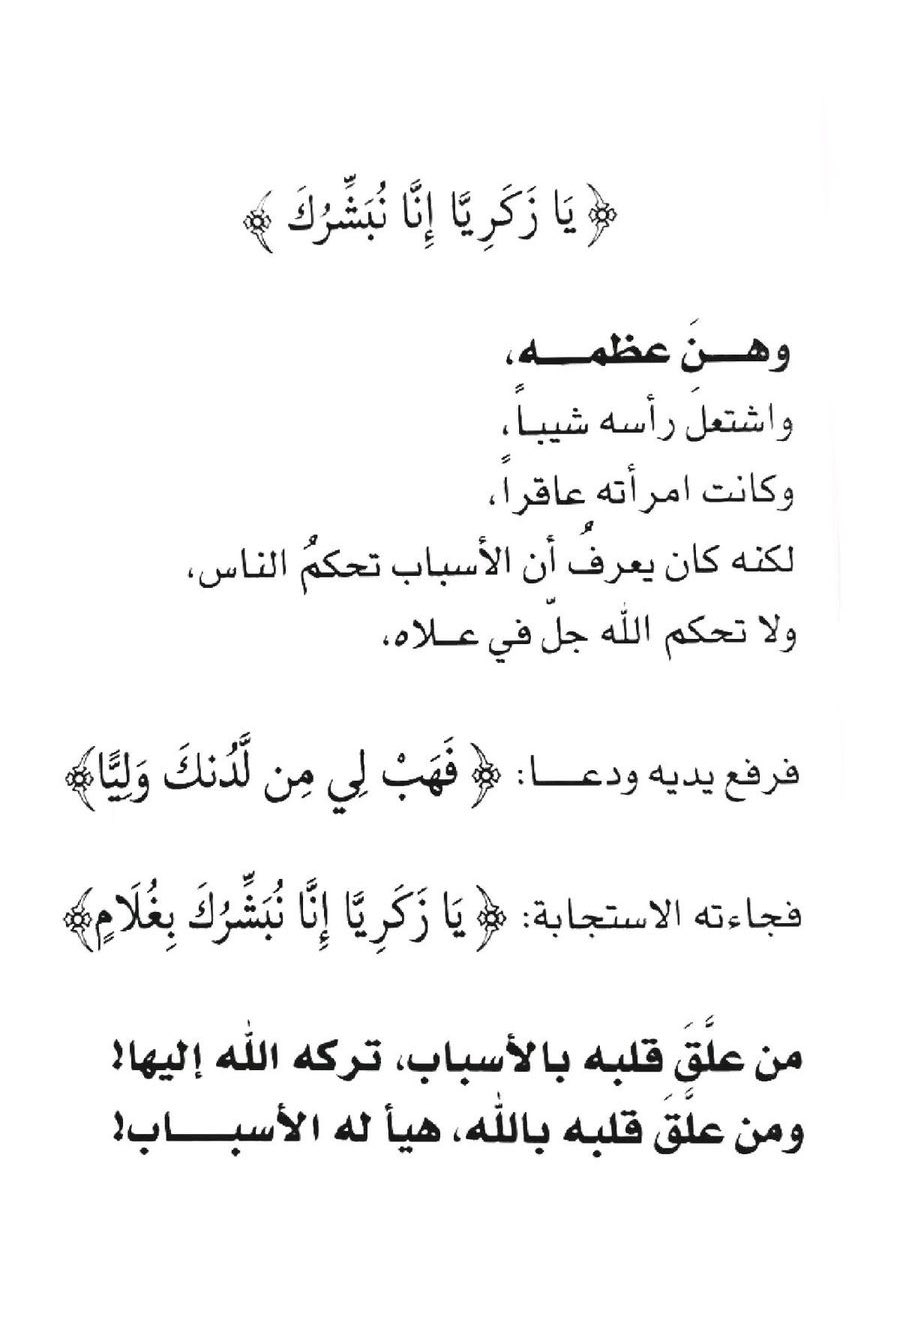 ﴿ يَا زَكَرِيَّا إِنَّا نُبَشِّرُكَ ﴾
وهـنَ عظمـه،
واشتعلَ رأسه شيبـاً،
وكانت امرأته عاقراً،
لكنه كان يعرفُ أن الأسباب تحكمُ الناس،
ولا تحكم الله جلّ في عـلاه،
فرفع يديه ودعـا: ﴿ فَهَبْ لِي مِن لَّدُنكَ وَلِيًّا﴾
فجاءته الاستجابة: ﴿ يَا زَكَرِيَّا إِنَّا نُبَشِّرُكَ بِغُلَامٍ﴾
من علَّقَ قلبه بالأسباب، تركه الله إليها!
ومن علَّقَ قلبه بالله، هيأ له الأسبـاب!